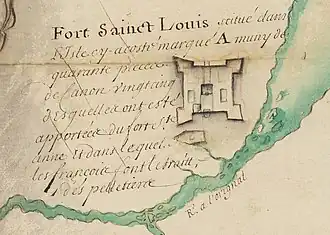 Fort Sainct Louis scitué dans
l'Isle cy a costé marqué A muny de
quarante pieces
de canon vingt cinq
desquelles ont esté
apportéz du fort Ste
anne Et dans lequel
les françois font le trait
des pelletrie
R. a l'orignal